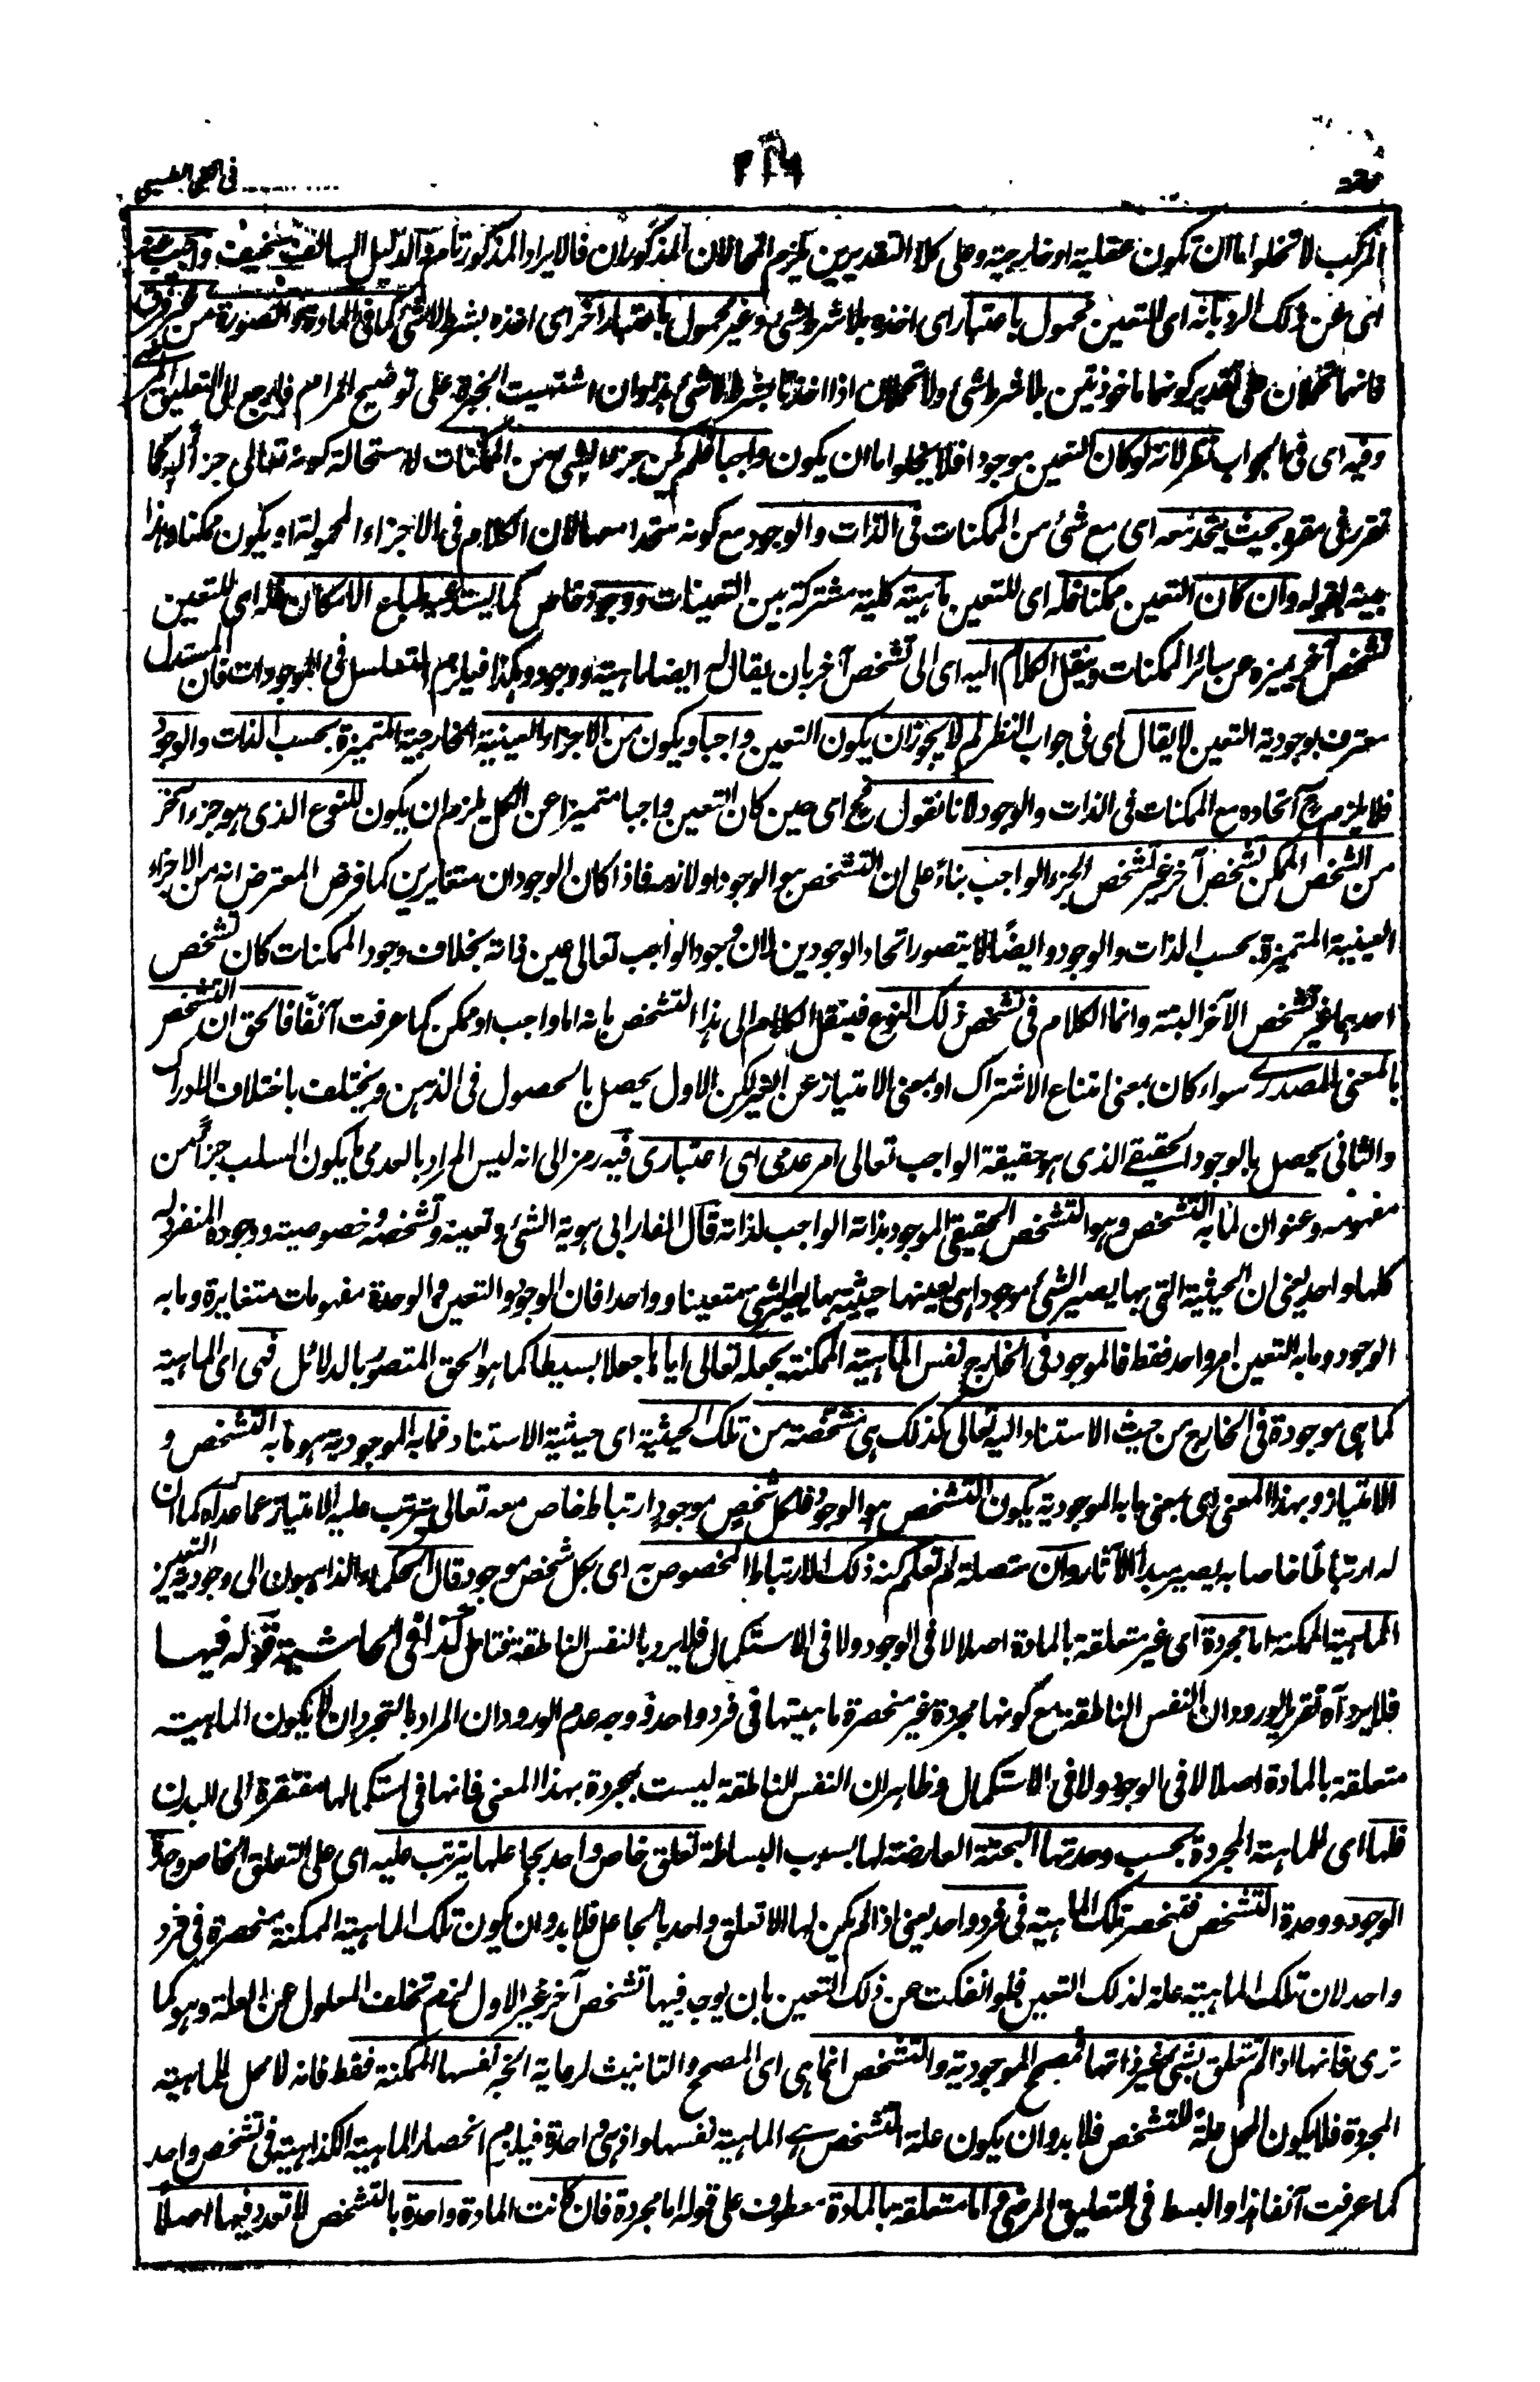 المركب لا تخلوا ما ان تكون عقلية او خارجية وعلى كلا التقديرين يلزم المحالان المذكوران فالايراد المذكور تام والدليل السالف سخيف واجيب عنه
اى عن ذلك الرد بانه اى التعين محمول باعتبار اى اخذه بلا شرط شئ وغير محمول باعتبار آخر اى اخذه بشرط لا شئ كما فى المادة والصورة من غير فرق
فانهما تحملان على تقدير كونهما ماخوذتين بلا شرط شئ ولا تحملان اذا اخذتا بشرط لا شئ هذا وان اشتهيت الخبرة على توضيح المرام فارجع الى التعليق المرضى
وفيه اى فى الجواب نظر لانه لو كان التعين موجودا فلا يخلوا ما ان يكون واجبا فلم يكن جزءا لشئ من الممكنات لاستحالة كونه تعالى جزأ لها كما
تقرر فى مقره بحيث يتحد معه اى مع شئ من الممكنات فى الذات والوجود مع كونه متحدا معها لان الكلام فى الاجزاء المحمولة او يكون ممكنا وهذا
بينه بقوله وان كان التعين ممكنا فله اى للتعين ماهية كلية مشتركة بين التعينات ووجود خاص كما يستدعيه طباع الامكان فله اى للتعين
تشخص آخر يميزه عن سائر الممكنات وينقل الكلام اليه اى الى تشخص آخر بان يقال له ايضا ماهية ووجود وهكذا فيلزم التسلسل فى الموجودات فان المستدل
معترف بوجودية التعين لا يقال اى فى جواب النظر لم لا يجوز ان يكون التعين واجبا ويكون من الاجزاء العينية الخارجية المتميزة بحسب الذات والوجود
فلا يلزم ح اتحاده مع الممكنات فى الذات والوجود لانا نقول ح اى حين كان التعين واجبا متميزا عن الكل يلزم ان يكون للنوع الذى هو جزء آخر
من الشخص الممكن تشخص آخر غير تشخص الجزء الواجب بناءً على ان التشخص هو الوجود او لازمه فاذا كان الوجودان متغايرين كما فرض المعترض انه من الاجزاء
العينية المتميزة بحسب الذات والوجود وايضًا لا يتصور اتحاد الوجودين لان وجود الواجب تعالى عين ذاته بخلاف وجود الممكنات كان تشخص
احدهما غير تشخص الآخر البتة وانما الكلام فى تشخص ذلك النوع فينتقل الكلام الى هذا التشخص بانه اما واجب او ممكن كما عرفت آنفًا فالحق ان التشخص
بالمعنى المصدرى سواء كان بمعنى امتناع الاشتراك او بمعنى الامتياز عن الغير لكن الاول يحصل بالحصول فى الذهن ويختلف باختلاف الادراك
والثانى يحصل بالوجود الحقيقى الذى هو حقيقة الواجب تعالى امر عدمى اى اعتبارى فيه رمز الى انه ليس المراد بالعدمى ما يكون السلب جزأ من
مفهومه وعنوان لما به التشخص وهو التشخص الحقيقى الموجود بذاته الواجب لذاته قال الفارابى هوية الشئ وتعينه وتشخصه وخصوصيته ووجوده المنفرد له
كلها واحد يعنى ان الحيثية التى بها يصير الشئ موجودا هى بعينها حيثية بها يصير الشئ متعينا وواحدا فان الوجود والتعين والوحدة مفهومات متغايرة وما به
الوجود وما به التعين امر واحد فقط فالموجود فى الخارج نفس الماهية الممكنة بجعله تعالى اياها جعلا بسيطا كما هو الحق المتصور بالدلائل فهى اى الماهية
كما هى موجودة فى الخارج من حيث الاستناد اليه تعالى كذلك هى متشخصة من تلك الحيثية اى حيثية الاستناد فما به الموجودية هو ما به التشخص و
الامتياز وبهذا المعنى اى بمعنى ما به الموجودية يكون التشخص هو الوجود فلكل شخص موجود ارتباط خاص معه تعالى يترتب عليه الامتياز عما عداه كما ان
له ارتباطًا خاصا به يصير مبدأ الآثار وان متصلة لم تعلم كنه ذلك الارتباط المخصوص به اى بكل شخص موجود قال الحكماء الذاهبون الى وجودية التعين
الماهية الممكنة اما مجردة اى غير متعلقة بالمادة اصلا لا فى الوجود ولا فى الاستكمال فلا يرد بالنفس الناطقة فتامل كذا فى الحاشية قوله فيها
فلا يرد آه تقرير الورود ان النفس الناطقة مع كونها مجردة غير منحصرة ماهيتها فى فرد واحد ووجه عدم الورود ان المراد بالتجرد ان لا يكون الماهية
متعلقة بالمادة اصلا لا فى الوجود ولا فى الاستكمال وظاهر ان النفس الناطقة ليست بمجردة بهذا المعنى فانها فى استكمالها مفتقرة الى البدن
فلها اى للماهية المجردة بحسب وحدتها البحتة العارضة لها بسبب البساطة تعلق خاص واحد بجاعلها يترتب عليه اى على التعلق الخاص وحدة
الوجود ووحدة التشخص فتنحصر تلك الماهية فى فرد واحد يعنى اذا لم يكن لها الا تعلق واحد بالجاعل فلا بد وان يكون تلك الماهية الممكنة منحصرة فى فرد
واحد لان تلك الماهية علة لذلك التعين فلو انفكت عن ذلك التعين بان يوجد فيها تشخص آخر غير الاول لزم تخلف المعلول عن العلة وهو كما
ترى فانها اذا لم تتعلق بشئ غير ذاتها فمصحح الموجودية والتشخص انما هى اى المصحح والتانيث لرعاية الخبر نفسها الممكنة فقط فانه لا محل للماهية
المجردة فلا يكون المحل علة للتشخص فلا بد وان يكون علة التشخص هى الماهية نفسها واذ هى واحدة فيلزم انحصار الماهية الكذاهية فى تشخص واحد
كما عرفت آنفا هذا والبسط فى التعليق المرضى واما متعلقة بالمادة معطوف على قوله اما مجردة فان كانت المادة واحدة بالتشخص لا تعدد فيها اصلًا